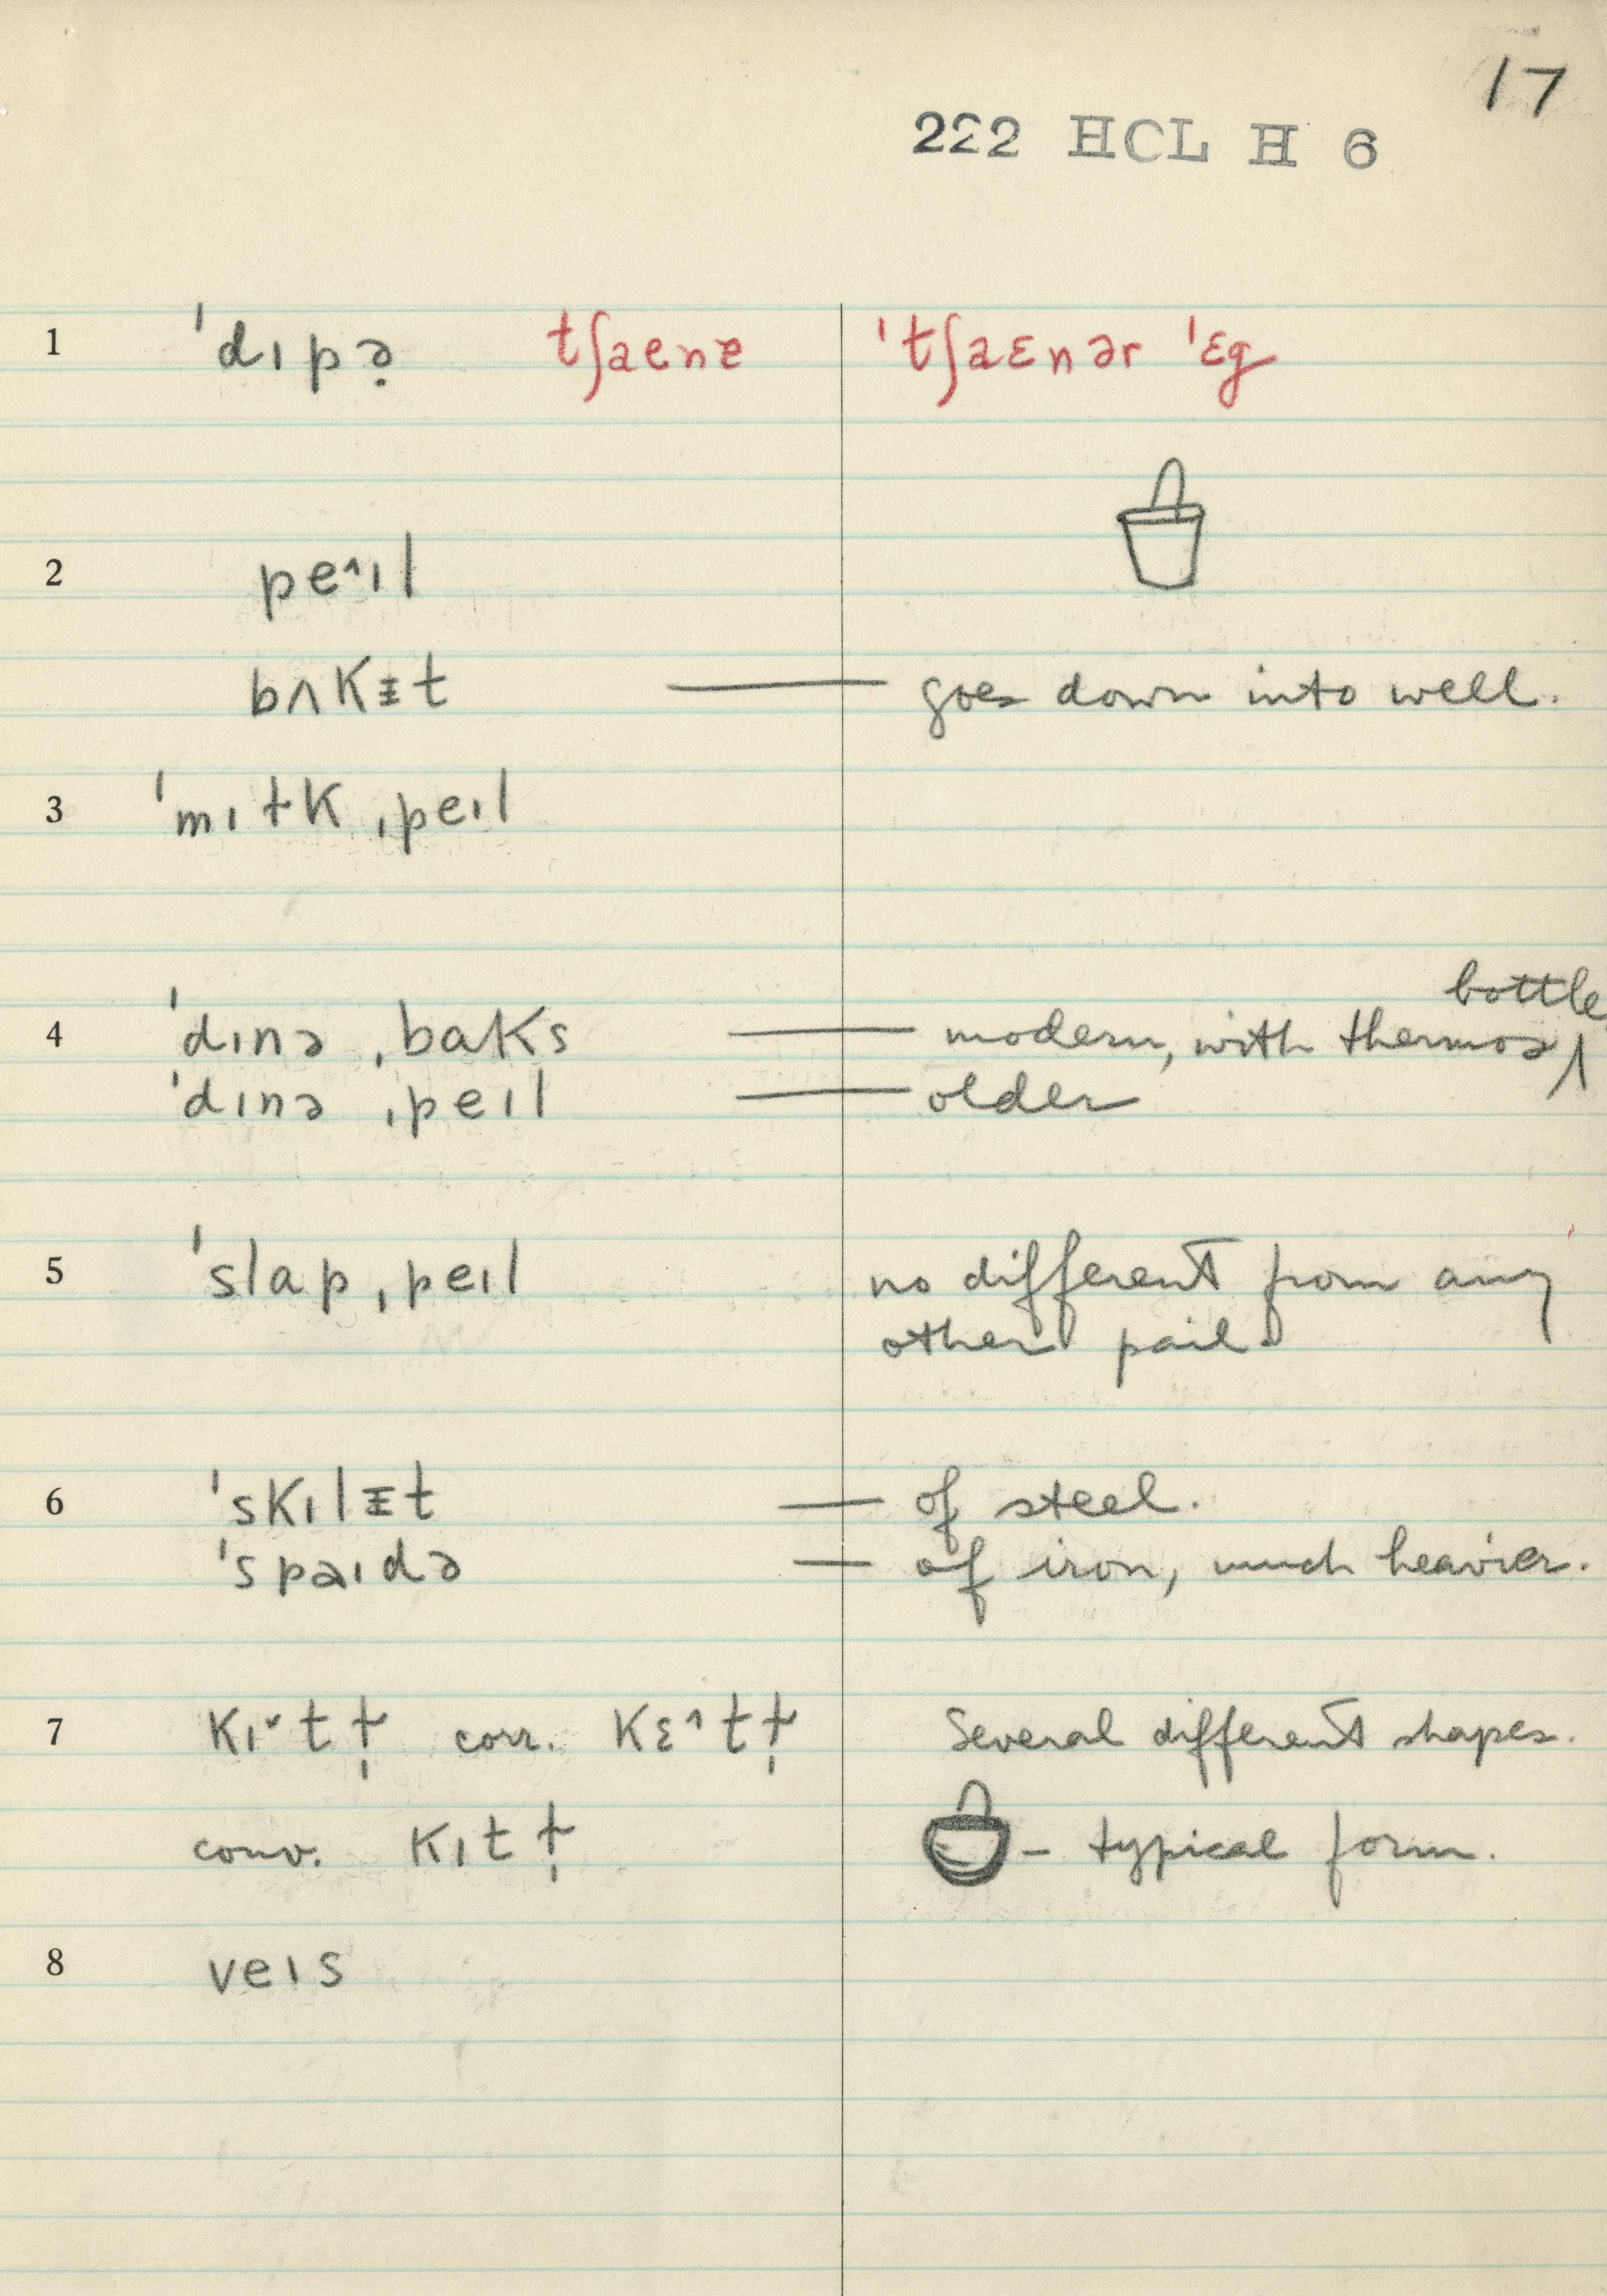 17
222 HCL H 6
1 ˈdɪpə̣ tʃaenɐ ˈtʃaɛnər ˈɛg
2 pe˄ɪl
bʌkᵻt — goes down into well.
3 ˈmɪɫk ˌpeɪl
bottle
4 ˈdɪnə ˌbaks — modern, with thermos ∧
ˈdɪnə ˌpeɪl — older
5 ˈslap ˌpeɪl no different from any
other pail
6 ˈskɪlᵻt — of steel.
ˈspaɪdə — of iron, much heavier.
7 kɪ˅tɫ̩ corr. kɛ˄tɫ̩ Several different shapes.
conv. kɪtɫ̩ – typical form.
8 veɪs